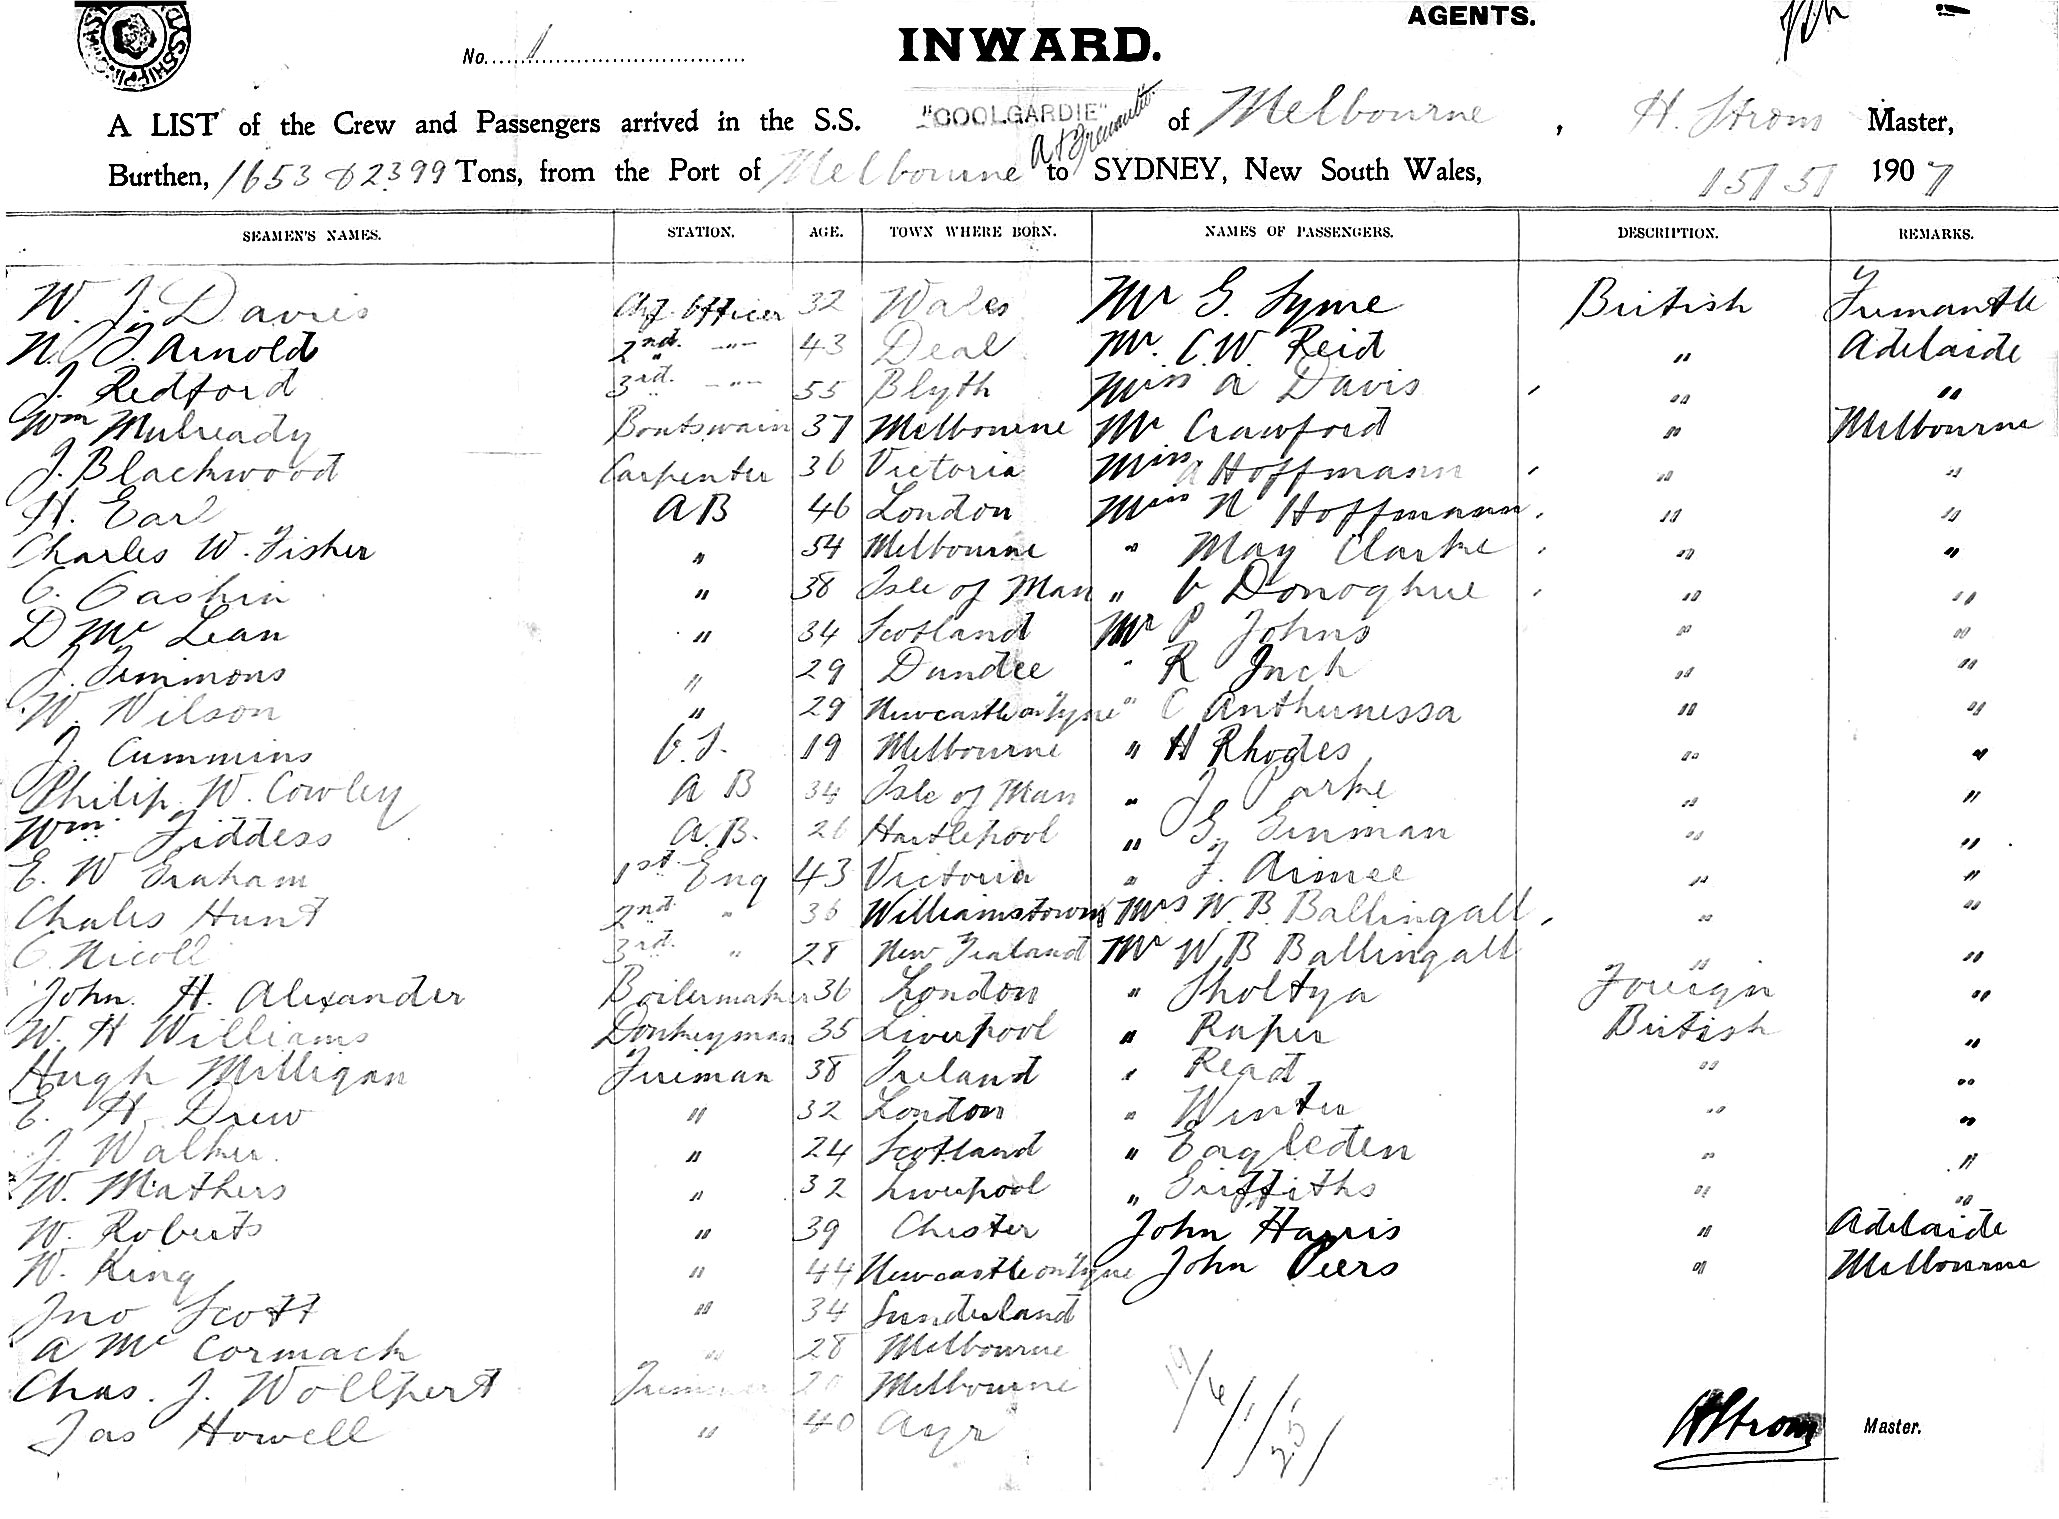 AGENTS.
No. 1
INWARD.
A LIST of the Crew and Passengers arrived in the S.S. "COOLGARDIE" of Melbourne, H. Strom Master,
Burthen, 1653 & 2399 Tons, from the Port of Melbourne & Fremantle to SYDNEY, New South Wales, 15/5/ 1907
SEAMEN'S NAMES. STATION. AGE. TOWN WHERE BORN. NAMES OF PASSENGERS. DESCRIPTION. REMARKS.
W. J. Davis Chf Officer 32 Wales Mr G. Syme British Fremantle
N. J. Arnold 2nd. " 43 Deal Mr. C. W. Reid " Adelaide
J. Redford 3rd. " 55 Blyth Miss A Davis " "
Wm Mulready Boatswain 37 Melbourne Mr Crawford " Melbourne
J. Blackwood Carpenter 36 Victoria Miss A Hoffmann " "
H. Earl AB 46 London Miss N Hoffmann " "
Charles W. Fisher " 54 Melbourne " May Clarke " "
C. Cashin " 38 Isle of Man " V Donoghue " "
D Mc Lean " 34 Scotland Mr P Johns " "
J. Timmons " 29 Dundee " R Jack " "
W. Wilson " 29 Newcastle on Tyne " C Anthunessa " "
J. Cummins O.S. 19 Melbourne " H Rhodes " "
Philip W. Cowley A B 34 Isle of Man " J Parke " "
Wm. Fiddess A.B. 26 Hartlepool " G. Ginman " "
E. W Graham 1st Eng 43 Victoria " J. Aimee " "
Chales Hunt 2nd " 36 Williamstown Mrs W. B. Ballingall " "
C. Nicoll 3rd. " 28 New Zealand Mr W B Ballingall " "
John. H. Alexander Boilermaker 36 London " Sholtya Foreign "
W. H Williams Donkeyman 35 Liverpool " Raper British "
Hugh Milligan Fireman 38 Ireland " Read " "
E. H Drew " 32 London " Winter " "
J. Walker. " 24 Scotland " Eagleden " "
W. Mathers " 32 Liverpool " Griffiths " "
W. Roberts " 39 Chester John Harris " Adelaide
W. King " 44 Newcastle on Tyne John Peers " Melbourne
Jno Scott " 34 Sunderland
A Mc Cormack " 28 Melbourne
Chas. J. Wollpert Trimmer 20 Melbourne
Jas Howell " 40 Ayr
H Strom Master.